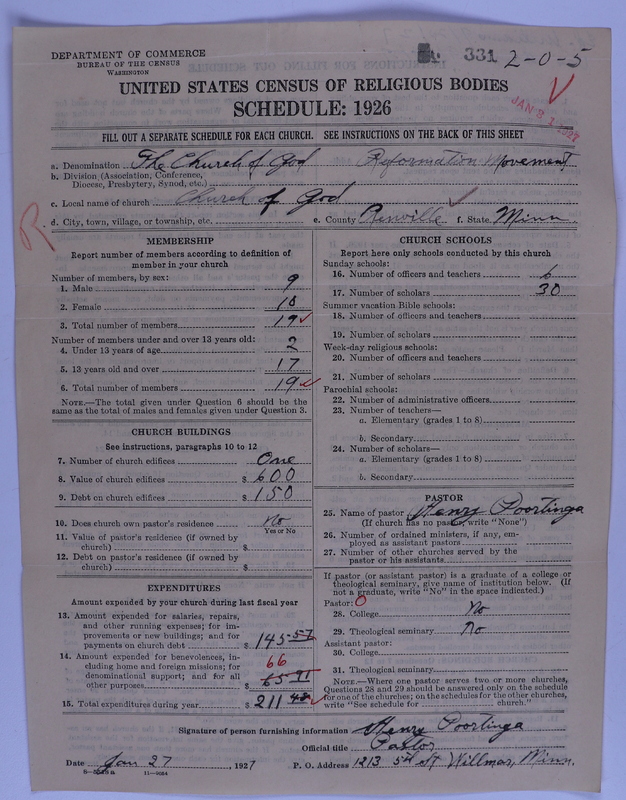 331 2-0-5
DEPARTMENT OF COMMERCE
BUREAU OF THE CENSUS
WASHINGTON
UNITED STATES CENSUS OF RELIGIOUS BODIES
SCHEDULE: 1926
JAN 31 1927
FILL OUT A SEPARATE SCHEDULE FOR EACH CHURCH. SEE INSTRUCTIONS ON THE BACK OF THIS SHEET
a. Denomination The Church of God Reformation Movement
b. Division (Association, Conference,
Diocese, Presbytery, Synod, etc.)
c. Local name of church Church of God
d. City, town, village, or township, etc. e. County Renville f. State Minn.
R
MEMBERSHIP
Report number of members according to definition of
member in your church
Number of members, by sex:
1. Male 9
2. Female 10
3. Total number of members 19
Number of members under and over 13 years old:
4. Under 13 years of age 2
5. 13 years old and over 17
6. Total number of members 19
NOTE.—The total given under Question 6 should be the
same as the total of males and females given under Question 3.
CHURCH BUILDINGS
See instructions, paragraphs 10 to 12
7. Number of church edifices One
8. Value of church edifices $ 600
9. Debt on church edifices $ 150
10. Does church own pastor's residence No
Yes or No
11. Value of pastor's residence (if owned by
church) $
12. Debt on pastor's residence (if owned by
church) $
EXPENDITURES
Amount expended by your church during last fiscal year
13. Amount expended for salaries, repairs,
and other running expenses; for im-
provements or new buildings; and for
payments on church debt $ 145 57
14. Amount expended for benevolences, in-
cluding home and foreign missions; for
denominational support; and for all
other purposes $ 65 91
66
15. Total expenditures during year $ 211 48
CHURCH SCHOOLS
Report here only schools conducted by this church
Sunday schools:
16. Number of officers and teachers 6
17. Number of scholars 30
Summer vacation Bible schools:
18. Number of officers and teachers
19. Number of scholars
Week-day religious schools:
20. Number of officers and teachers
21. Number of scholars
Parochial schools:
22. Number of administrative officers
23. Number of teachers—
a. Elementary (grades 1 to 8)
b. Secondary
24. Number of scholars—
a. Elementary (grades 1 to 8)
b. Secondary
PASTOR
25. Name of pastor Henry Poortinga
(If church has no pastor, write "None")
26. Number of ordained ministers, if any, em-
ployed as assistant pastors
27. Number of other churches served by the
pastor or his assistants
If pastor (or assistant pastor) is a graduate of a college or
theological seminary, give name of institution below. (If
not a graduate, write "No" in the space indicated.)
Pastor: 0
28. College No
29. Theological seminary No
Assistant pastor:
30. College
31. Theological seminary
NOTE.—Where one pastor serves two or more churches,
Questions 28 and 29 should be answered only on the schedule
for one of the churches; on the schedules for the other churches,
write "See schedule for church."
Signature of person furnishing information Henry Poortinga
Official title Pastor
Date Jan 27, 1927 P. O. Address 1213 5th St Willmar, Minn.
11-9064